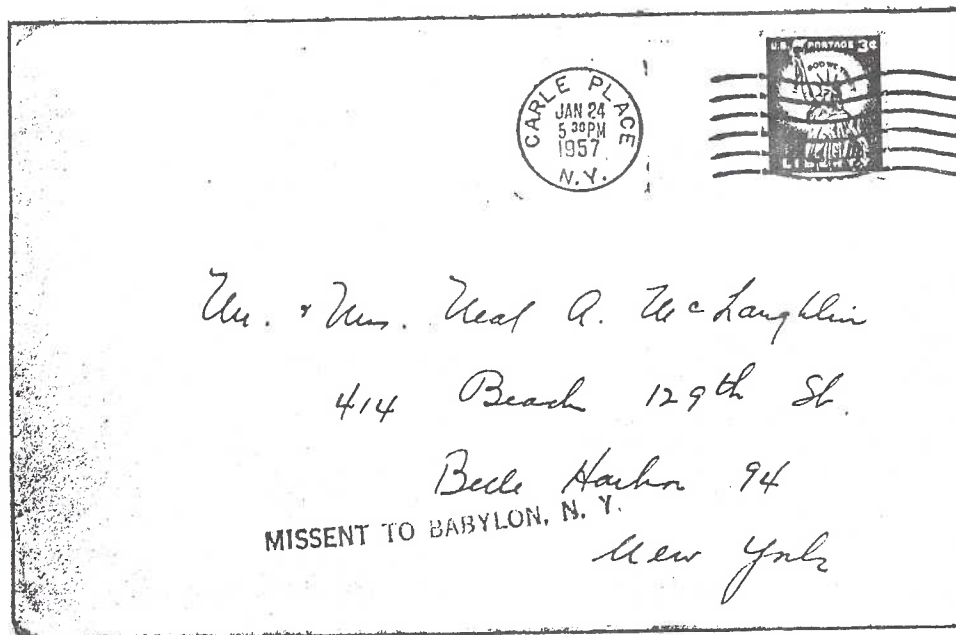 U.S. POSTAGE 3¢
CARLE PLACE
JAN 24
5 30 PM
1957
N.Y.
LIBERTY
Mr. & Mrs. Neal A. McLaughlin
414 Beach 129th St.
Belle Harbor 94
MISSENT TO BABYLON, N. Y.
New York